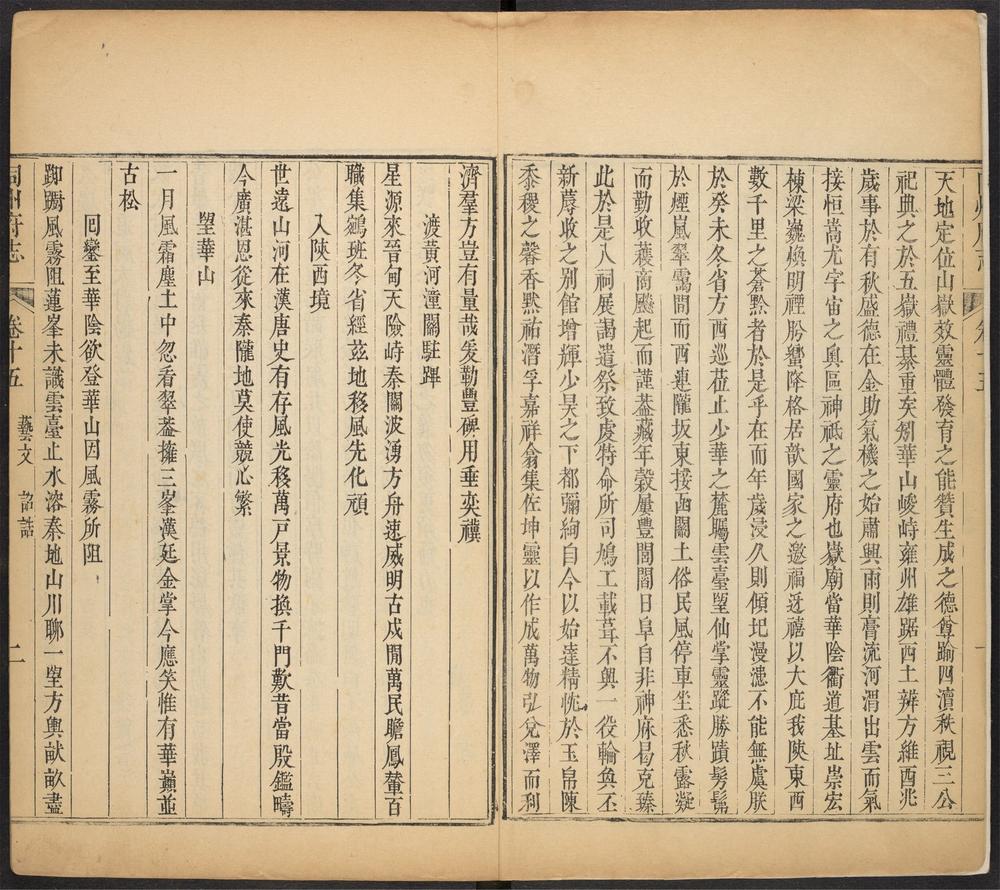 天地定位山嶽效靈體發育之能贊生成之德尊踰四瀆秩視三公
祀典之於五嶽禮綦重矣矧華山峻峙雍州雄踞西土辨方維酉兆
歲事於有秋盛德在金助氣機之始肅興雨則膏流河渭出雲而氣
接恒嵩尤宇宙之奧區神祇之靈府也嶽廟當華陰衢道基址崇宏
棟梁巍煥明禋肸蠁降格居歆國家之邀福迓禧以大庇我陝東西
數千里之蒼黔者於是乎在而年歲浸久則傾圮漫漶不能無虞朕
於癸未冬省方西巡蒞止少華之麓矚雲臺望仙掌靈蹤勝蹟髣髴
於煙嵐翠靄間而西連隴坂東接函關土俗民風停車坐悉秋露凝
而勤收穫商飈起而謹蓋藏年穀屢豐閭閻日阜自非神庥曷克臻
此於是入祠展謁遣祭致虔特命所司鳩工載葺不興一役輪奐丕
新蓐收之別館增輝少昊之下都彌絢自今以始達精忱於玉帛陳
黍稷之馨香黙祐潛孚嘉祥翕集佐坤靈以作成萬物弘兌澤而利
濟羣方豈有量哉爰勒豐碑用垂奕禩
渡黃河潼關駐蹕
星源來晉甸天險峙秦關波湧方舟速威明古戍閒萬民瞻鳳輦百
職集鵷班冬省經茲地移風先化頑
入陝西境
世遠山河在漢唐史有存風光移萬戸景物換千門歎昔當殷鑑疇
今廣湛恩從來秦隴地莫使競心繁
望華山
一月風霜塵土中忽看翠葢擁三峯漢廷金掌今應笑惟有華巔並
古松
囘鑾至華陰欲登華山因風霧所阻
踟躕風霧阻蓮峯未識雲臺止水溶秦地山川聊一望方輿畎畝盡
同州府志 卷十五 藝文 詔誥 二